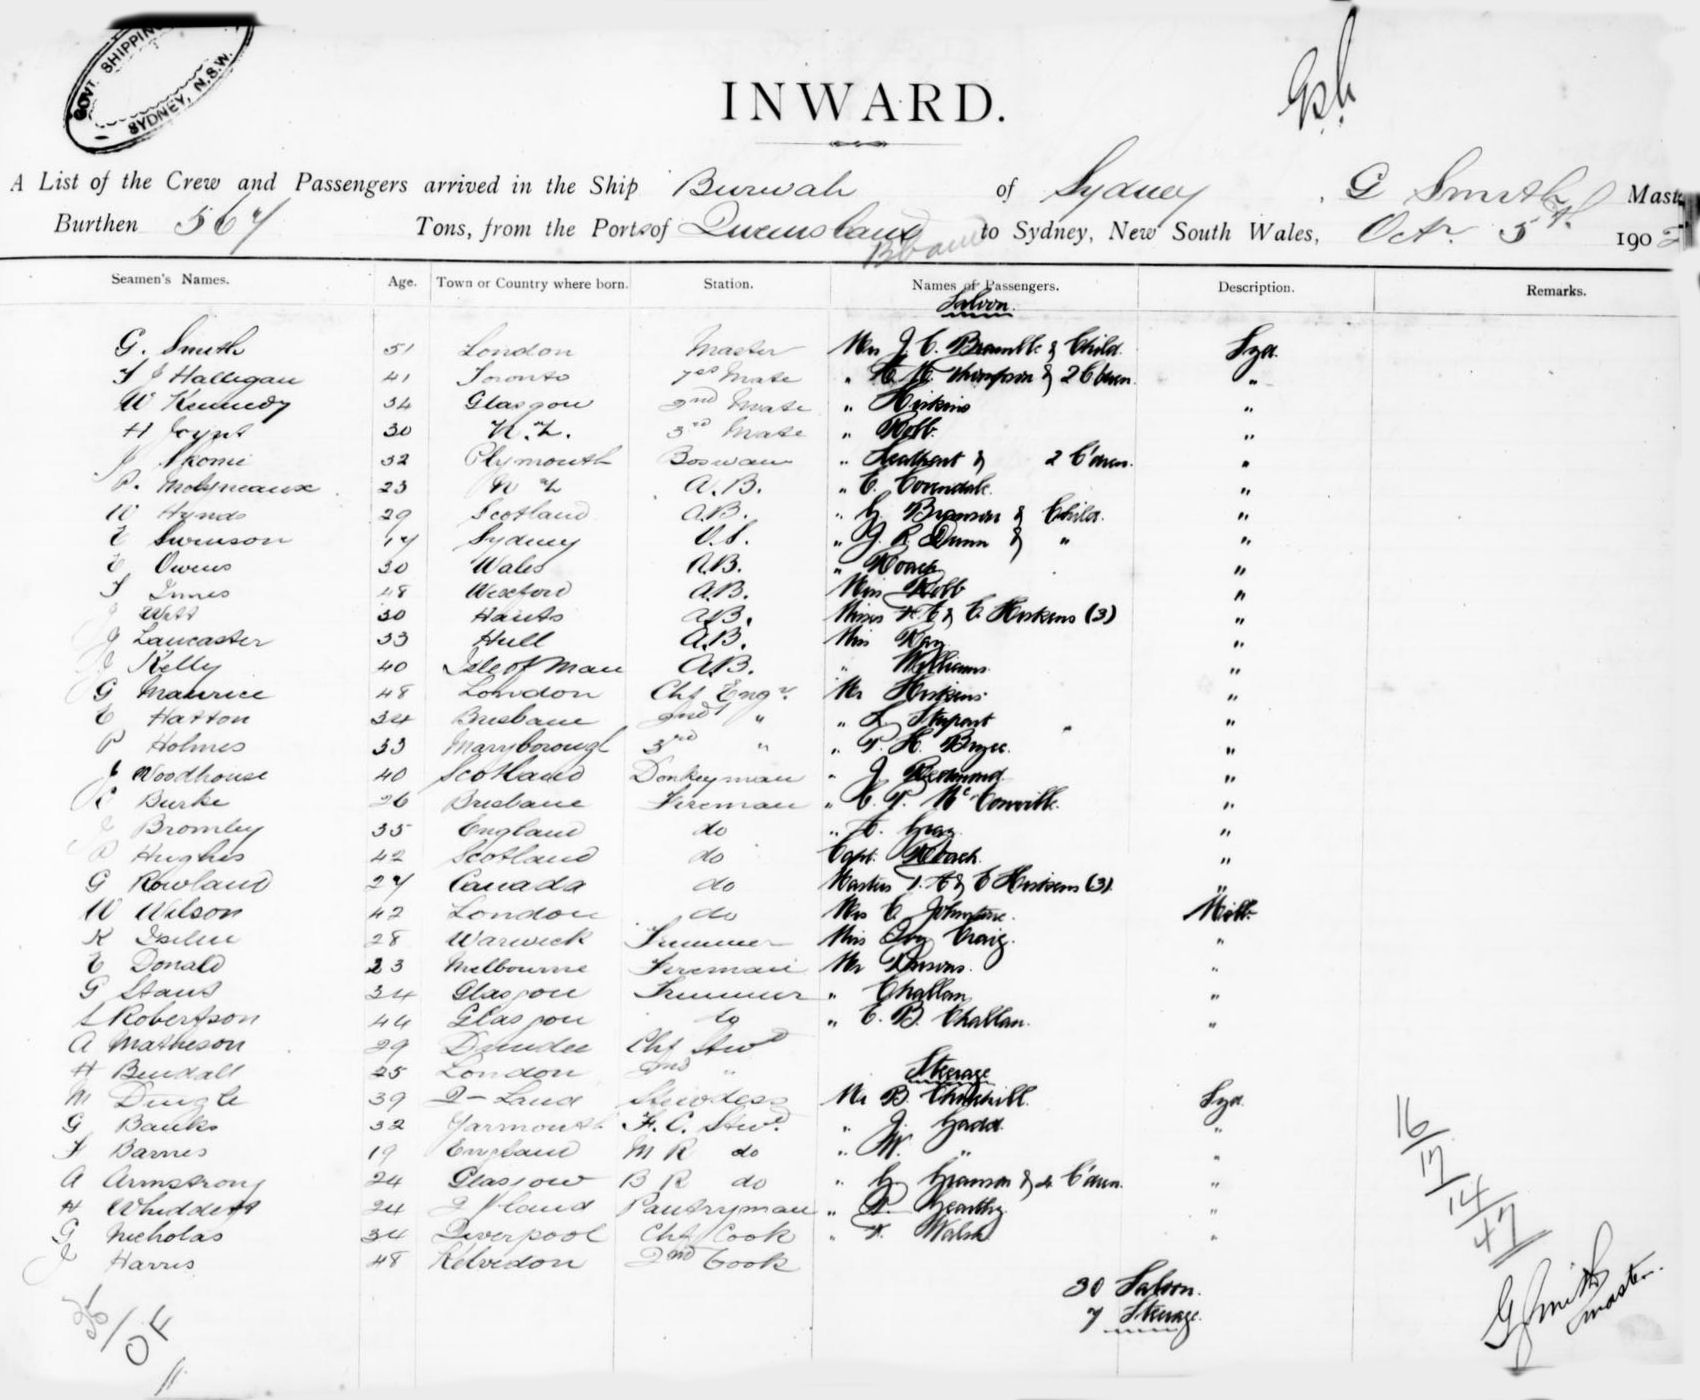 GOVT. SHIPPING
SYDNEY, N.S.W.
INWARD.
A List of the Crew and Passengers arrived in the Ship Burwah of Sydney, G Smith Mast
Burthen 567 Tons, from the Ports of Queensland to Sydney, New South Wales, Octr. 5th 190
Seamen's Names. Age. Town or Country where born. Station. Names of Passengers. Description. Remarks.
Saloon.
G. Smith 51 London Master Mrs J. C. Bramble & Child. Syd.
T J Halligan 41 Toronto 1st Mate " Thompson & 2 C'dren "
W Kennedy 34 Glasgow 2nd Mate " Hoskins "
H Joynt 30 N.Z. 3rd Mate " Robb. "
J 32 Plymouth Boswain " & 2 C'dren. "
P. Molyneaux 23 N Z A.B. " C. Covendale. "
W Hynds 29 Scotland A.B. " G. Branson & Child. "
E Swenson 17 Sydney O.S. " J. R. Dunn & " "
E Owens 30 Wales A.B. " Roach "
T Innes 48 Wexford A.B. Miss Robb "
J Witt 30 Hants A.B. Misses & C. Hoskins (3) "
J Lancaster 33 Hull A.B. Miss Ray "
J Kelly 40 Isle of Man A.B. " Williams "
G Maurice 48 London Chf Engr. Mr Hoskins "
E Hatton 34 Brisbane 2nd " " "
P Holmes 33 Maryborough 3rd " " T. H. Bryce. "
J Woodhouse 40 Scotland Donkeyman " J Redmond "
Burke 26 Brisbane Fireman " C. P. McConville. "
J Bromley 35 England do " Gray "
P Hughes 42 Scotland do Capt. Roach. "
G Rowland 27 Canada do Masters & C Hoskins (3). "
W Wilson 42 London do Mrs C. Johnstone. Melb.
R 28 Warwick Trimmer Miss Ivy Craig. "
E Donald 23 Melbourne Fireman Mr "
G Staus 34 Glasgow Trimmer " Challan "
S Robertson 44 Glasgow do " C. B. Challan. "
A Matheson 29 Dundee Chf Stwd
H Bendall 25 London 2nd " Steerage
M Dingle 39 Q-Land Stewdess Mr B. Churchill. Syd.
G Banks 32 Yarmouth F. C. Stwd. " J. Gadd. "
F Barnes 19 England M R do " W. " "
A Armstrong 24 Glasgow B R do " G. Branson & 2 C'dren. "
H Whiddett 24 Q'land Pantryman " "
G Nicholas 34 Liverpool Chf Cook " Walsh "
J Harris 48 Kelvedon 2nd Cook
30 Saloon.
7 Steerage.
16
17
14
47
G Smith
master.